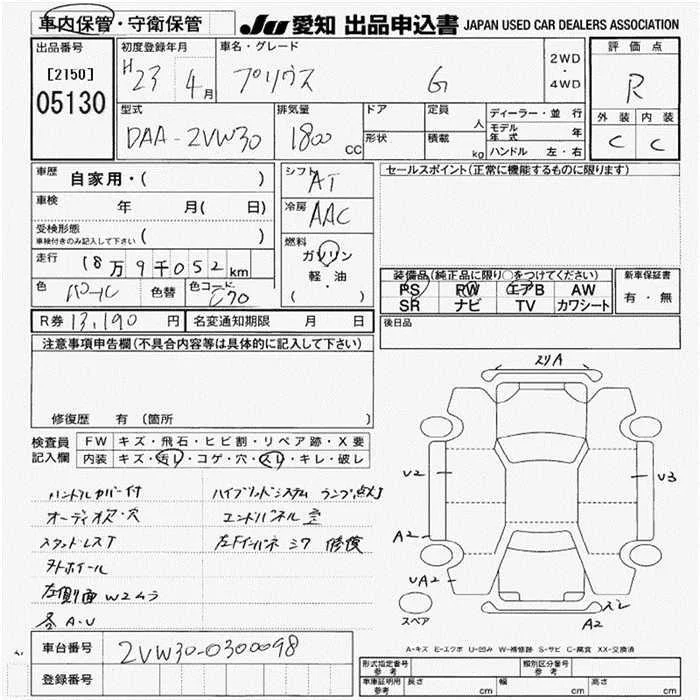 車内保管・守衛保管
JU 愛知 出品申込書 JAPAN USED CAR DEALERS ASSOCIATION
出品番号
[2150]
05130
初度登録年月
H23 4月
車名・グレード
プリウス G
2WD
・
4WD
評価点
R
外装 内装
C C
型式
DAA-2VW30
排気量
1800 CC
ドア
形状
定員 人
積載 kg
ディーラー・並行
モデル年式 年
ハンドル 左・右
車歴 自家用・( )
車検 年 月( 日)
受検形態
車検付きのみ記入して下さい ( )
走行 18万9千052km
色 パール 色替 色コード 070
シフト AT
冷房 AAC
燃料
ガソリン
軽・油
( )
セールスポイント(正常に機能するものに限ります)
装備品(純正品に限り○をつけてください)
PS PW エアB AW
SR ナビ TV カワシート
新車保証書
有・無
R券 13,190 円 名変通知期限 月 日
後日品
注意事項申告欄(不具合内容等は具体的に記入して下さい)
修復歴 有 (箇所
検査員記入欄
FW キズ・飛石・ヒビ割・リペア跡・X要
内装 キズ・汚レ・コゲ・穴・スレ・キレ・破レ
ハンドルカバー付
オーディオス・穴
スタッドレスT
外ホイール
左側面W2ムラ
各A・U
ハイブリッドシステム ランプ点灯
エンドパネル
左Fインパネ 修復
スリA
U2
U3
A2
UA2
スレ
A2
スペア
A-キズ E-エクボ U-凹み W-補修跡 S-サビ C-腐食 XX-交換済
車台番号 2VW30-0300098
登録番号
形式指定番号 参考
類別区分番号 参考
車庫証明用 参考 長さ cm 幅 cm 高さ cm